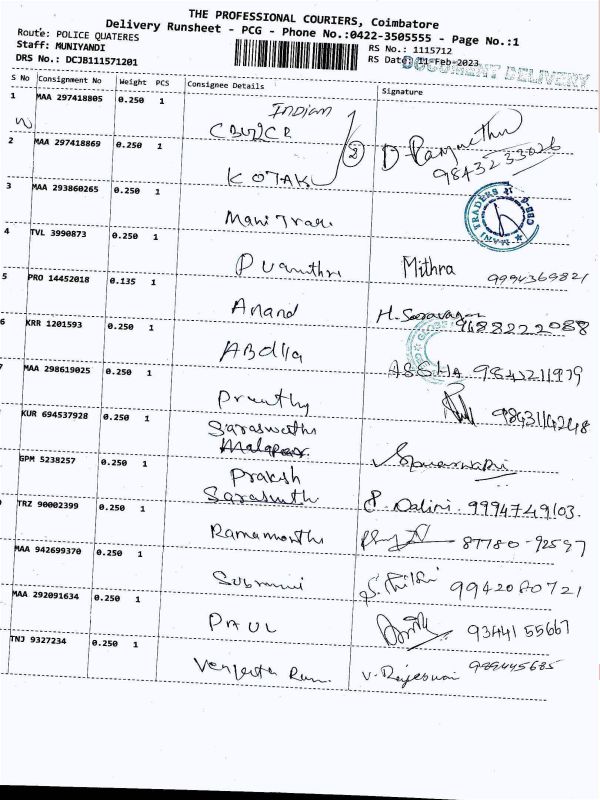 THE PROFESSIONAL COURIERS, Coimbatore
Delivery Runsheet - PCG - Phone No.:0422-3505555 - Page No.:1
Route: POLICE QUATERES
Staff: MUNIYANDI
DRS No.: DCJB111571201
RS No.: 1115712
RS Date: 11-Feb-2023
DOCUMENT DELIVERY
S No Consignment No Weight PCS Consignee Details Signature
1 MAA 297418805 0.250 1 Indian
2 MAA 297418869 0.250 1 KOTAK 2 98432 33026
3 MAA 293860265 0.250 1 Mani MANI TRADERS CBE-9
4 TVL 3990873 0.250 1 Mithra 9994369821
5 PRO 14452018 0.135 1 Anand H. Saravanan 9488222088
6 KRR 1201593 0.250 1 ASSHA 9843211979
7 MAA 298619025 0.250 1 Preethy 9843114248
KUR 694537928 0.250 1 Saraswathi
GPM 5238257 0.250 1 Prakash
9994749103.
TRZ 90002399 0.250 1 Ramamoorthi 87780-92597
MAA 942699370 0.250 1 Subramni 9942080721
MAA 292091634 0.250 1 PAUL 93441 55667
TNJ 9327234 0.250 1 V. Rajeswari 989445685